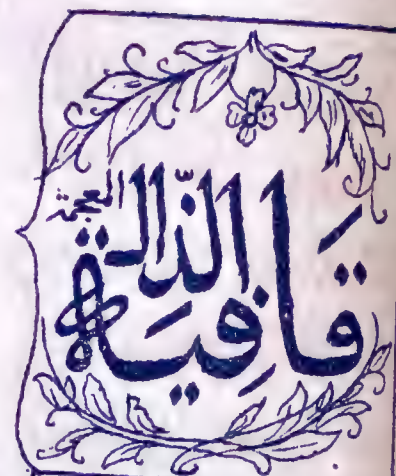 قَافِيَة الذّال
المعجمة